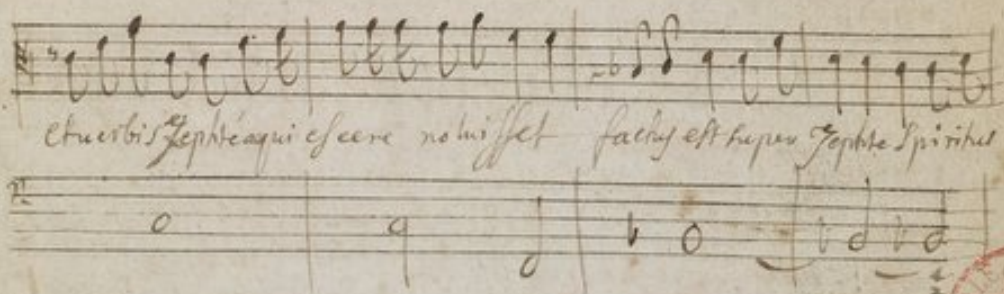 et uerbis Jephte aquiescere noluisset factus est super Jephte Spiritus